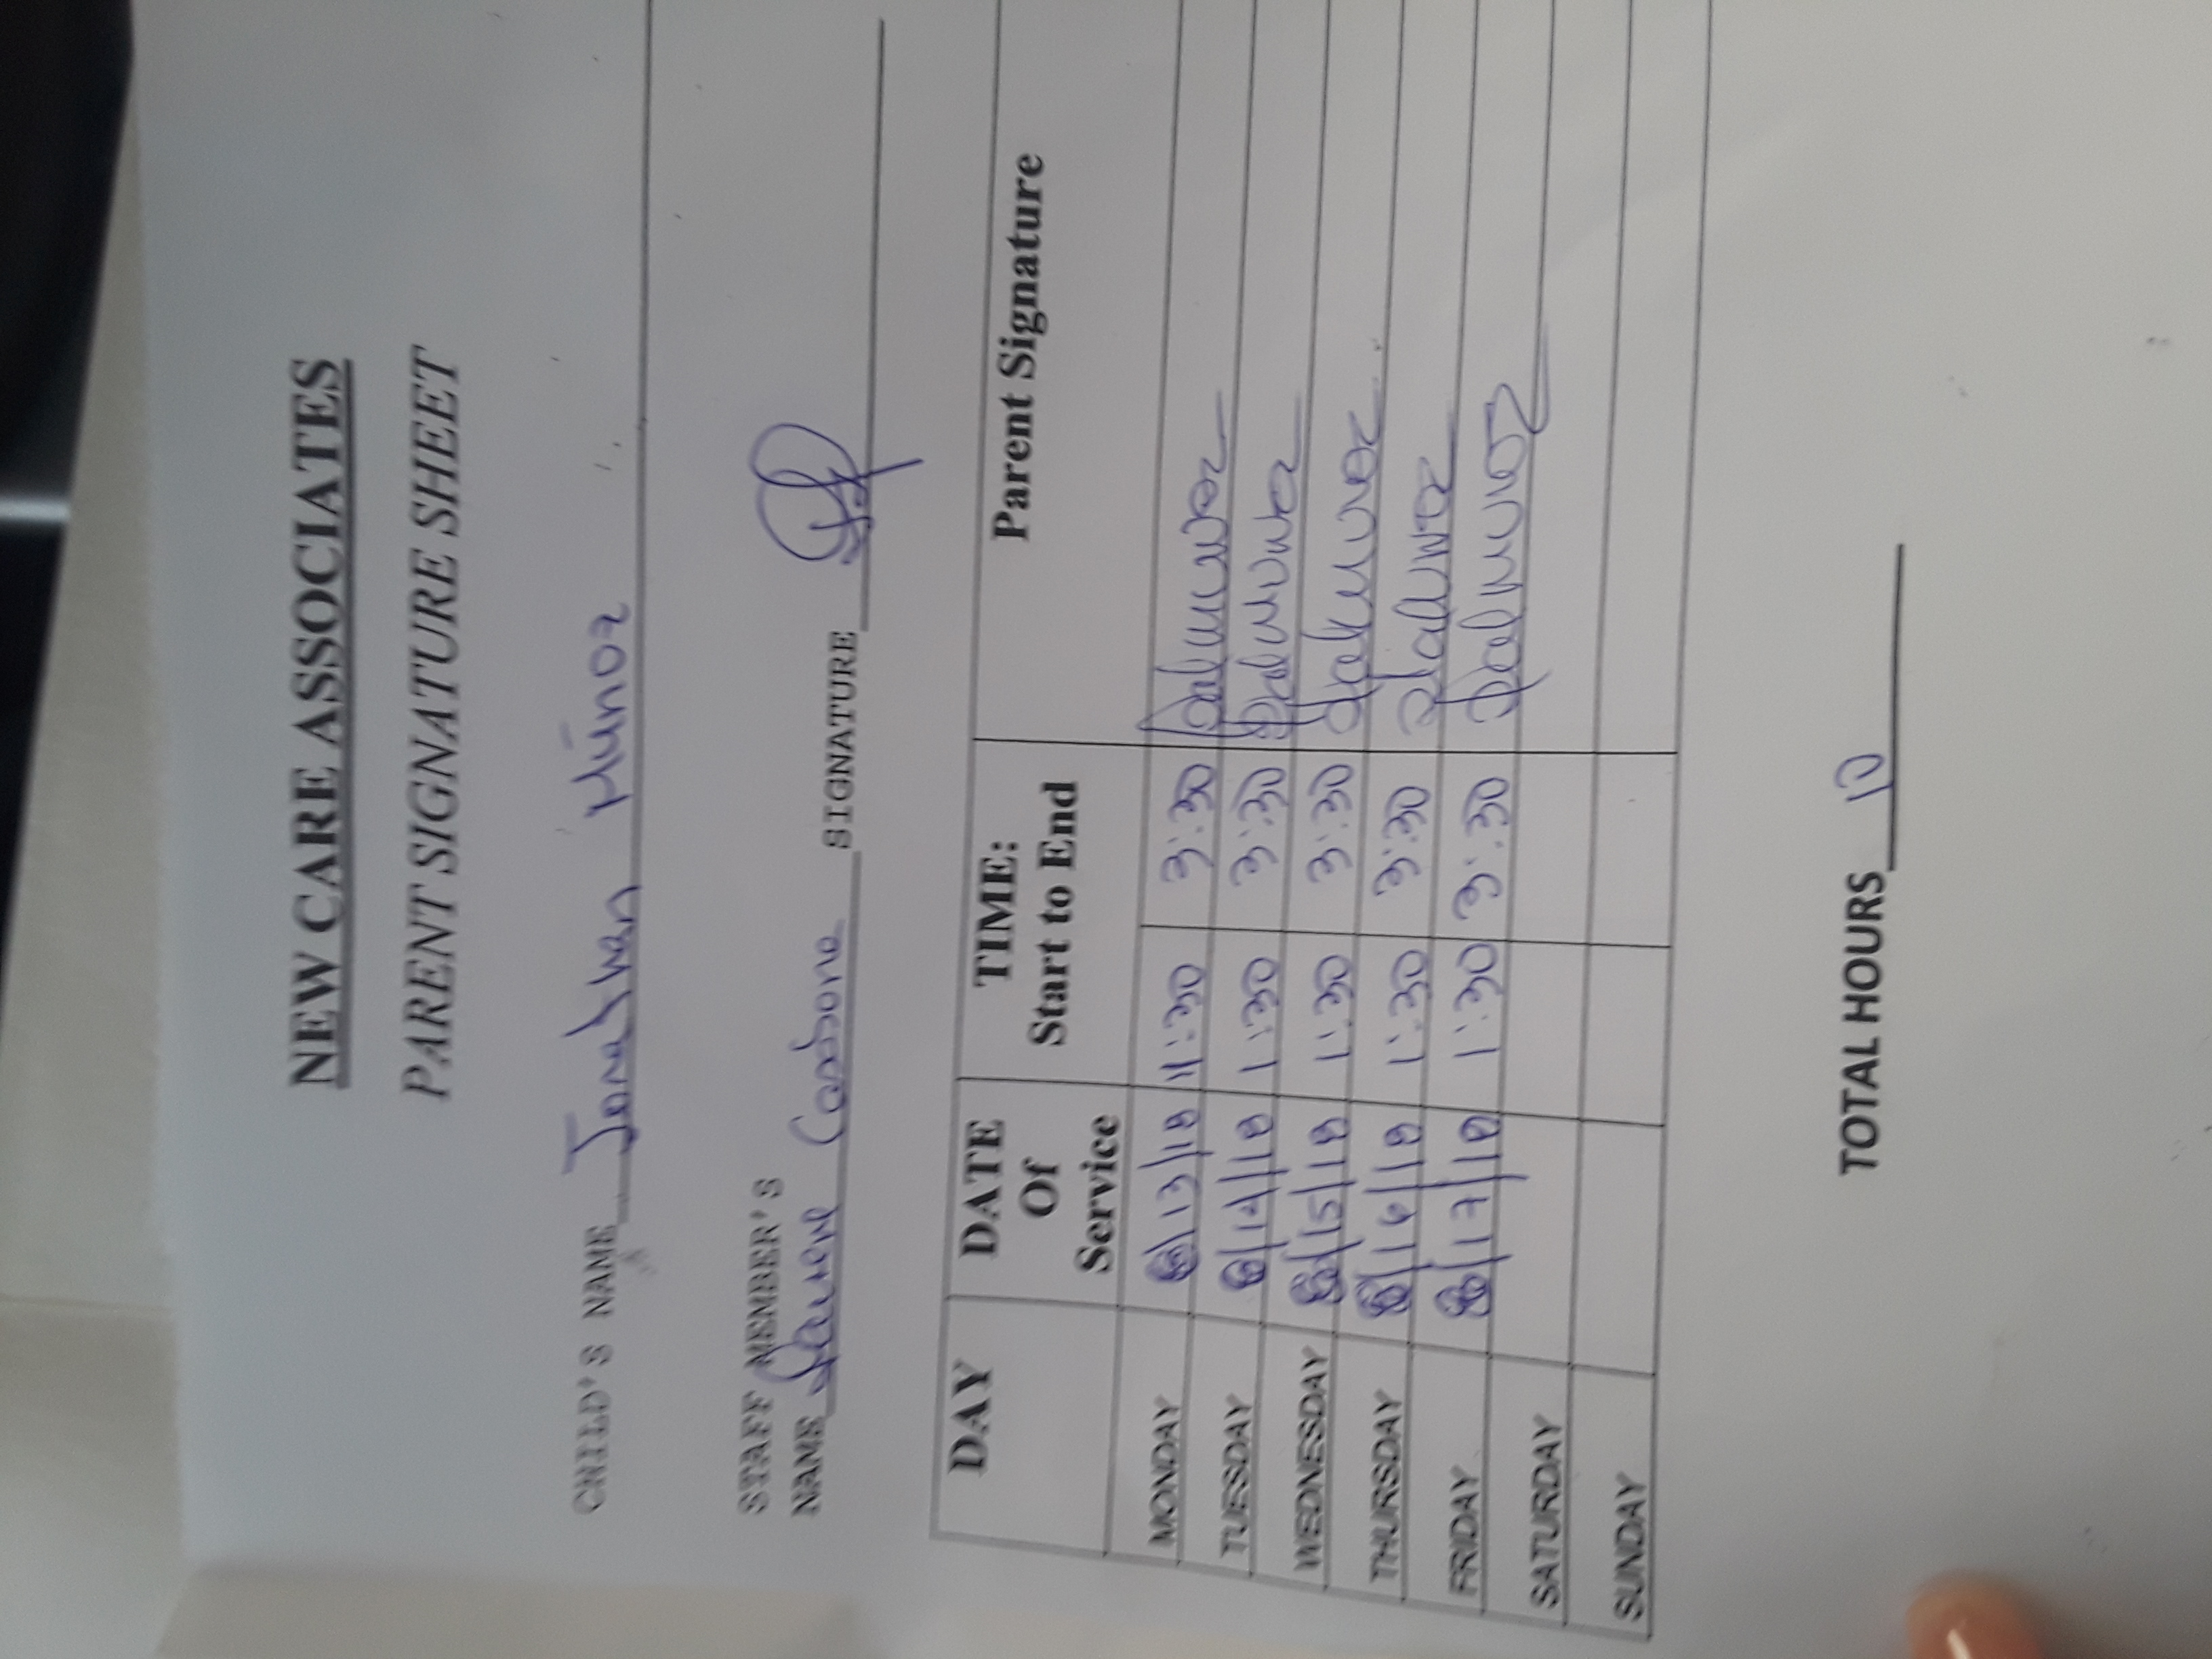 NEW CARE ASSOCIATES
PARENT SIGNATURE SHEET
CHILD'S NAME Jonathan Múnoz
STAFF MEMBER'S
NAME Carbone SIGNATURE
DAY DATE Of Service TIME: Start to End Parent Signature
MONDAY 8/13/18 1:30 3:30
TUESDAY 8/14/18 1:30 3:30
WEDNESDAY 8/15/18 1:30 3:30
THURSDAY 8/16/18 1:30 3:30
FRIDAY 8/17/18 1:30 3:30
SATURDAY
SUNDAY
TOTAL HOURS 10